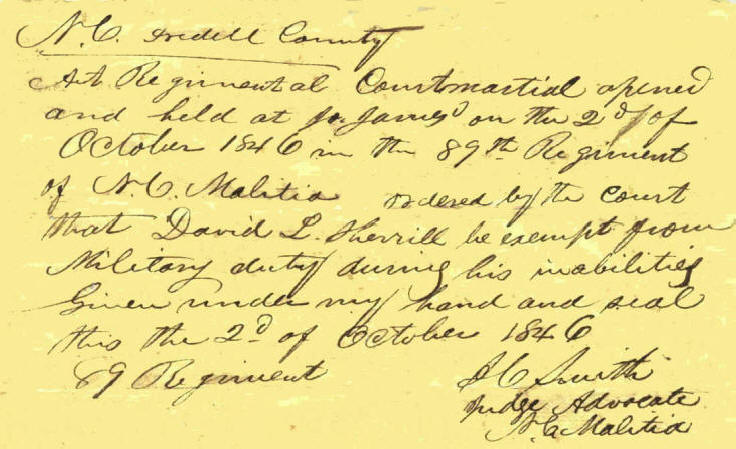 N. C. Iredell County
At Regimental Courtmartial opened
and held at Jo. James' on the 2d of
October 1846 in the 89th Regiment
of N. C. Malitia ordered by the Court
that David L. Sherrill be exempt from
Military duty during his inabilities
Given under my hand and seal
this the 2d of October 1846
89 Regiment
J C Smith
Judge Advocate
N. Ca Malitia